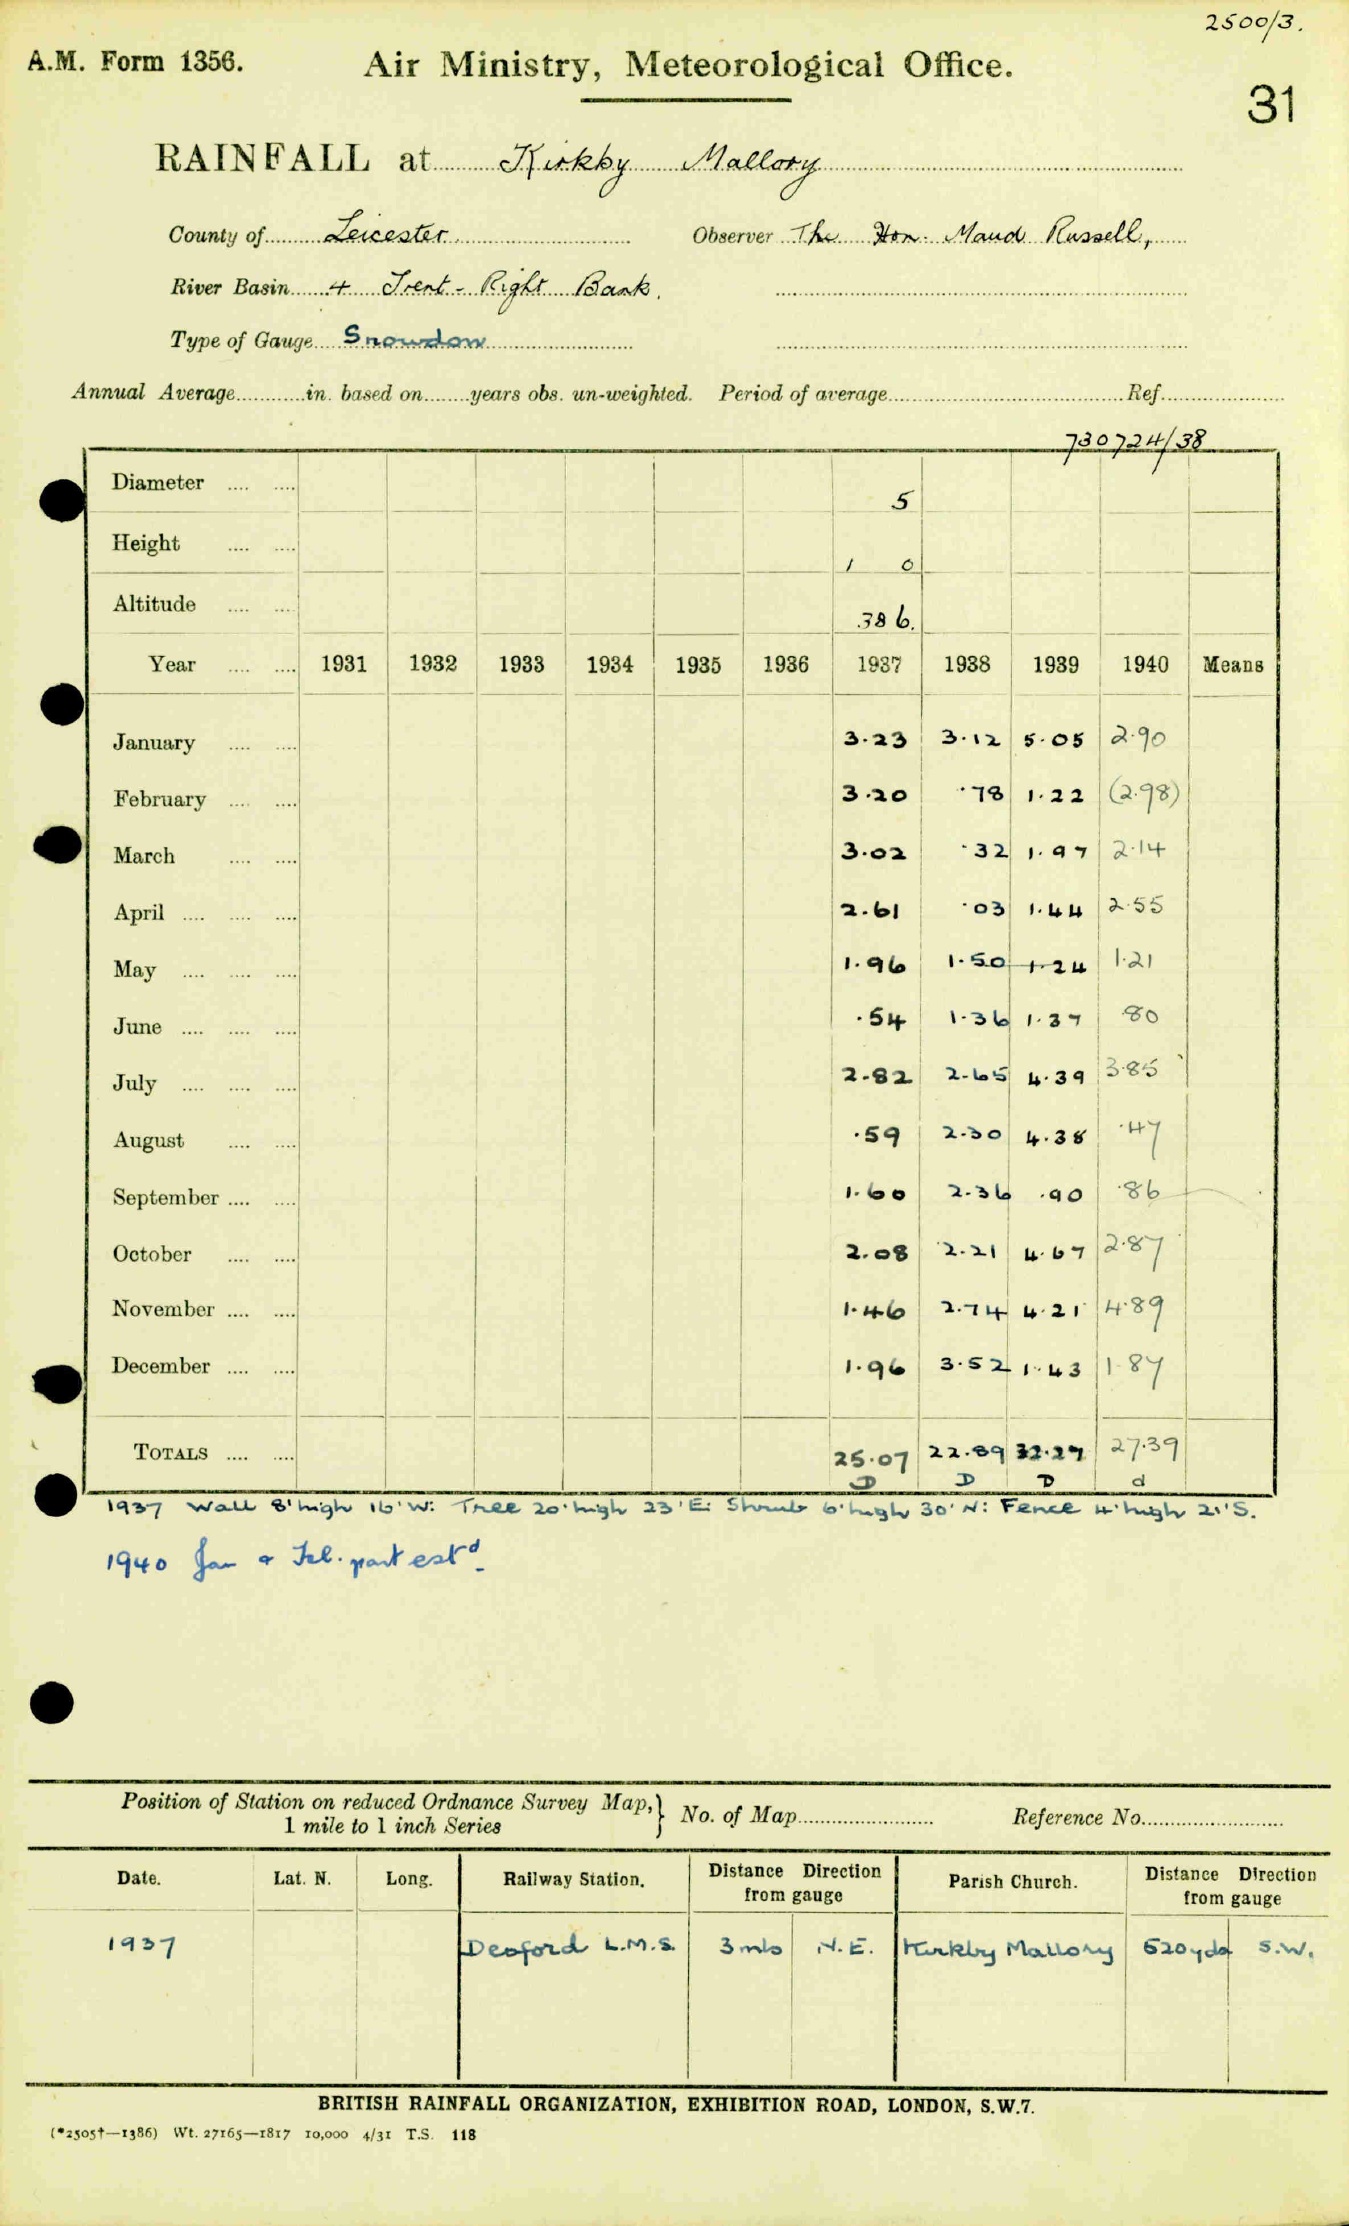 2500/3.
A.M. Form 1356. Air Ministry, Meteorological Office.
31
RAINFALL at Kirkby Mallory
County of Leicester. Observer The Hon. Maud Russell,
River Basin 4 Trent - Right Bank.
Type of Gauge Snowdon
Annual Average in. based on years obs. un-weighted. Period of average Ref.
730724/38
Diameter 5
Height 1 0
Altitude 386.
Year 1931 1932 1933 1934 1935 1936 1937 1938 1939 1940 Means
January 3.23 3.12 5.05 2.90
February 3.20 .78 1.22 (2.98)
March 3.02 .32 1.97 2.14
April 2.61 .03 1.44 2.55
May 1.96 1.50 1.24 1.21
June .54 1.36 1.37 .80
July 2.82 2.65 4.39 3.85
August .59 2.30 4.38 .47
September 1.60 2.36 .90 .86
October 2.08 2.21 4.67 2.87
November 1.46 2.74 4.21 4.89
December 1.96 3.52 1.43 1.87
TOTALS 25.07 22.89 32.27 27.39
D D D d
1937 Wall 8' high 16' W: Tree 20' high 23' E: Shrub 6' high 30' N: Fence 4' high 21' S.
1940 Jan & Feb. part estd.
Position of Station on reduced Ordnance Survey Map,} No. of Map Reference No.
1 mile to 1 inch Series
Date. Lat. N. Long. Railway Station. Distance Direction from gauge Parish Church. Distance Direction from gauge
1937 Desford L.M.S. 3 mls N.E. Kirkby Mallory 520 yds S.W.
BRITISH RAINFALL ORGANIZATION, EXHIBITION ROAD, LONDON, S.W.7.
(*2505†—1386) Wt. 27165—1817 10,000 4/31 T.S. 118